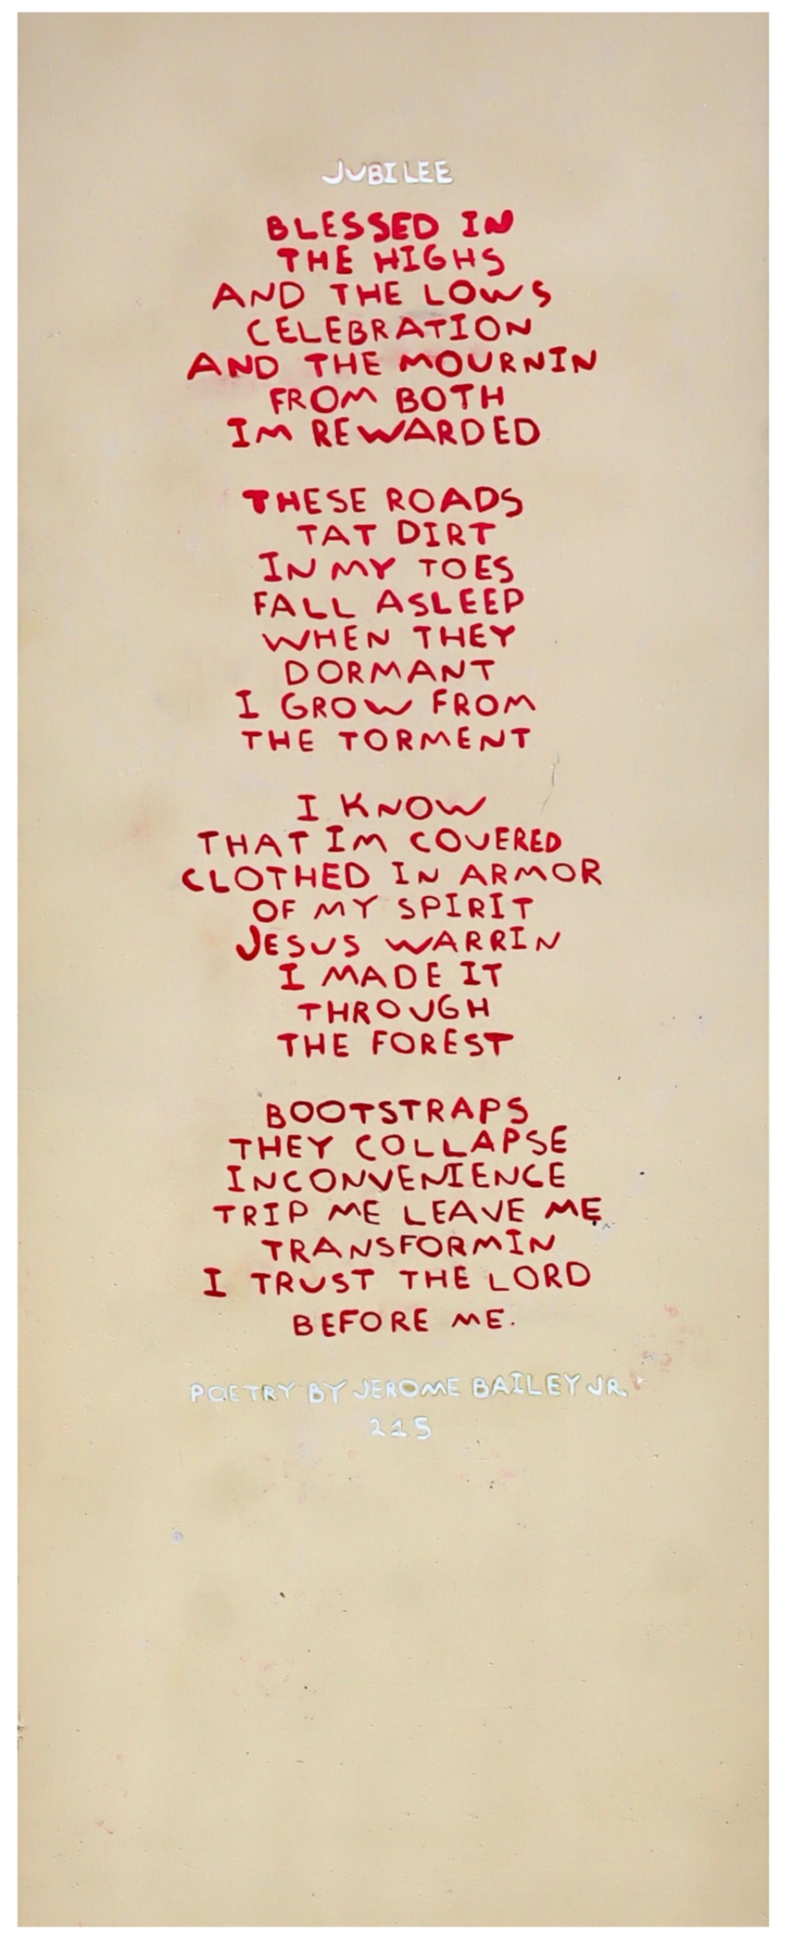 JUBILEE
BLESSED IN
THE HIGHS
AND THE LOWS
CELEBRATION
AND THE MOURNIN
FROM BOTH
IM REWARDED
THESE ROADS
TAT DIRT
IN MY TOES
FALL ASLEEP
WHEN THEY
DORMANT
I GROW FROM
THE TORMENT
I KNOW
THAT IM COVERED
CLOTHED IN ARMOR
OF MY SPIRIT
JESUS WARRIN
I MADE IT
THROUGH
THE FOREST
BOOTSTRAPS
THEY COLLAPSE
INCONVENIENCE
TRIP ME LEAVE ME
TRANSFORMIN
I TRUST THE LORD
BEFORE ME.
POETRY BY JEROME BAILEY JR.
215